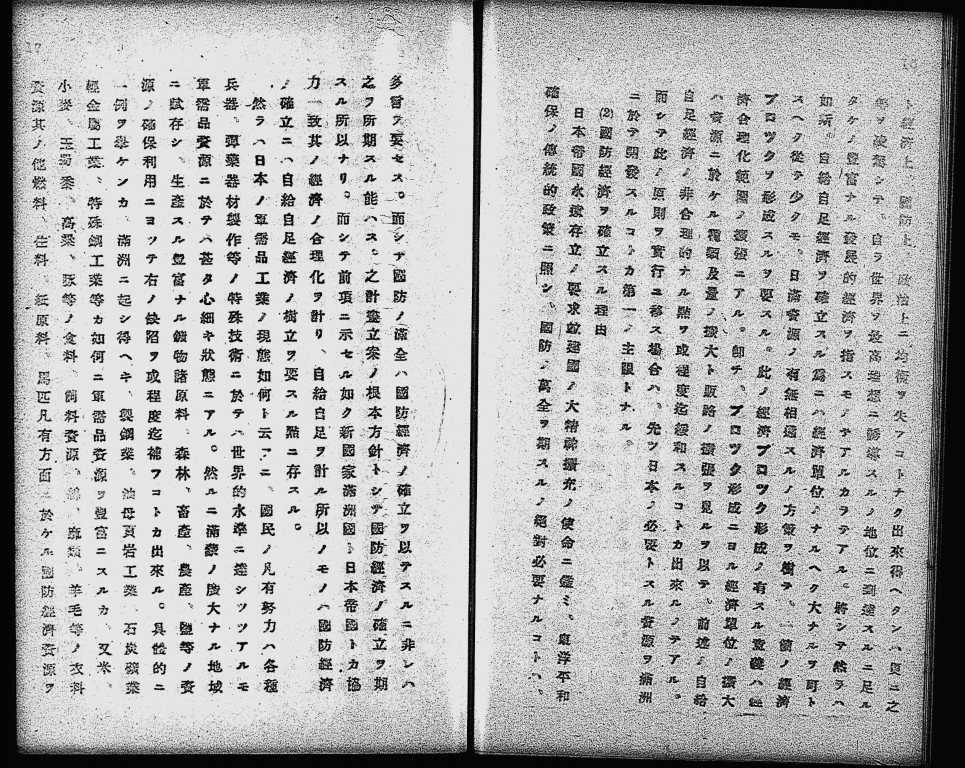 16
經濟上、國防上、政治上ニ均衡ヲ失フコトナク出來得ヘクンハ更ニ之
等ヲ破壞シテ、自ラ世界ヲ最高理想ニ誘導スルノ地位ニ到達スルニ足ル
タケノ豐富ナル發展的經濟ヲ指スモノテアルカラテアル。將シテ然ラハ
如斯、自給自足經濟ヲ確立スル爲ニハ經濟單位ノナルヘク大ナルヲ可ト
スヘク從テ少クモ、日滿資源ノ有無相通スルノ方策ヲ樹テ、一個ノ經濟
ブロックヲ形成スルヲ要スル。此ノ經濟ブロック形成ノ有スル意義ハ經
濟合理化範圍ノ擴張ニアル。卽チ、ブロック形成ニヨル經濟單位ノ擴大
ハ資源ニ於ケル種類及量ノ擴大ト販路ノ擴張ヲ見ルヲ以テ、前述ノ自給
自足經濟ノ非合理的ナル點ヲ或程度迄緩和スルコトカ出來ルノテアル。
而シテ此ノ原則ヲ實行ニ移ス場合ハ、先ツ日本ノ必要トスル資源ヲ滿洲
ニ於テ開發スルコトカ第一ノ主眼トナル。
(2)國防經濟ヲ確立スル理由
日本帝國永遠存立ノ要求竝建國ノ大精神擴充ノ使命ニ鑑ミ、東洋平和
確保ノ傳統的政策ニ照シ、國防ノ萬全ヲ期スルノ絕對必要ナルコトハ、
17
多言ヲ要セス。而シテ國防ノ滿全ハ國防經濟ノ確立ヲ以テスルニ非レハ
之ヲ所期スル能ハス。之計畫立案ノ根本方針トシテ國防經濟ノ確立ヲ期
スル所以ナリ。而シテ前項ニ示セル如ク新國家滿洲國ト日本帝國トカ協
力一致其ノ經濟ノ合理化ヲ計リ、自給自足ヲ計ル所以ノモノハ國防經濟
ノ確立ニハ自給自足經濟ノ樹立ヲ要スル點ニ存スル。
然ラハ日本ノ軍需品工業ノ現態如何ト云フニ、國民ノ凡有努力ハ各種
兵器、彈藥器材製作等ノ特殊技術ニ於テハ世界的水準ニ達シツツアルモ
軍需品資源ニ於テハ甚タ心細キ狀態ニアル。然ルニ滿蒙ノ廣大ナル地域
ニ賦存シ、生產スル豐富ナル鑛物諸原料、森林、畜產、農產、鹽等ノ資
源ノ確保利用ニヨツテ右ノ缺陷ヲ或程度迄補フコトカ出來ル。具體的ニ
一例ヲ擧ケンカ、滿洲ニ起シ得ヘキ、製鋼業、油母頁岩工業、石炭礦業
輕金屬工業、特殊鋼工業等カ如何ニ軍需品資源ヲ豐富ニスルカ、又米、
小麥、玉蜀黍、高粱、豚等ノ食料、飼料資源、綿、麻類、羊毛等ノ衣料
資源其ノ他燃料、生料、紙原料、馬匹凡有方面ニ於ケル國防經濟資源ヲ